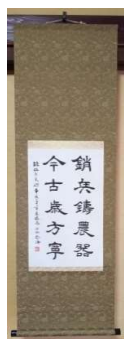 銷兵鑄農器
今古歳方寧